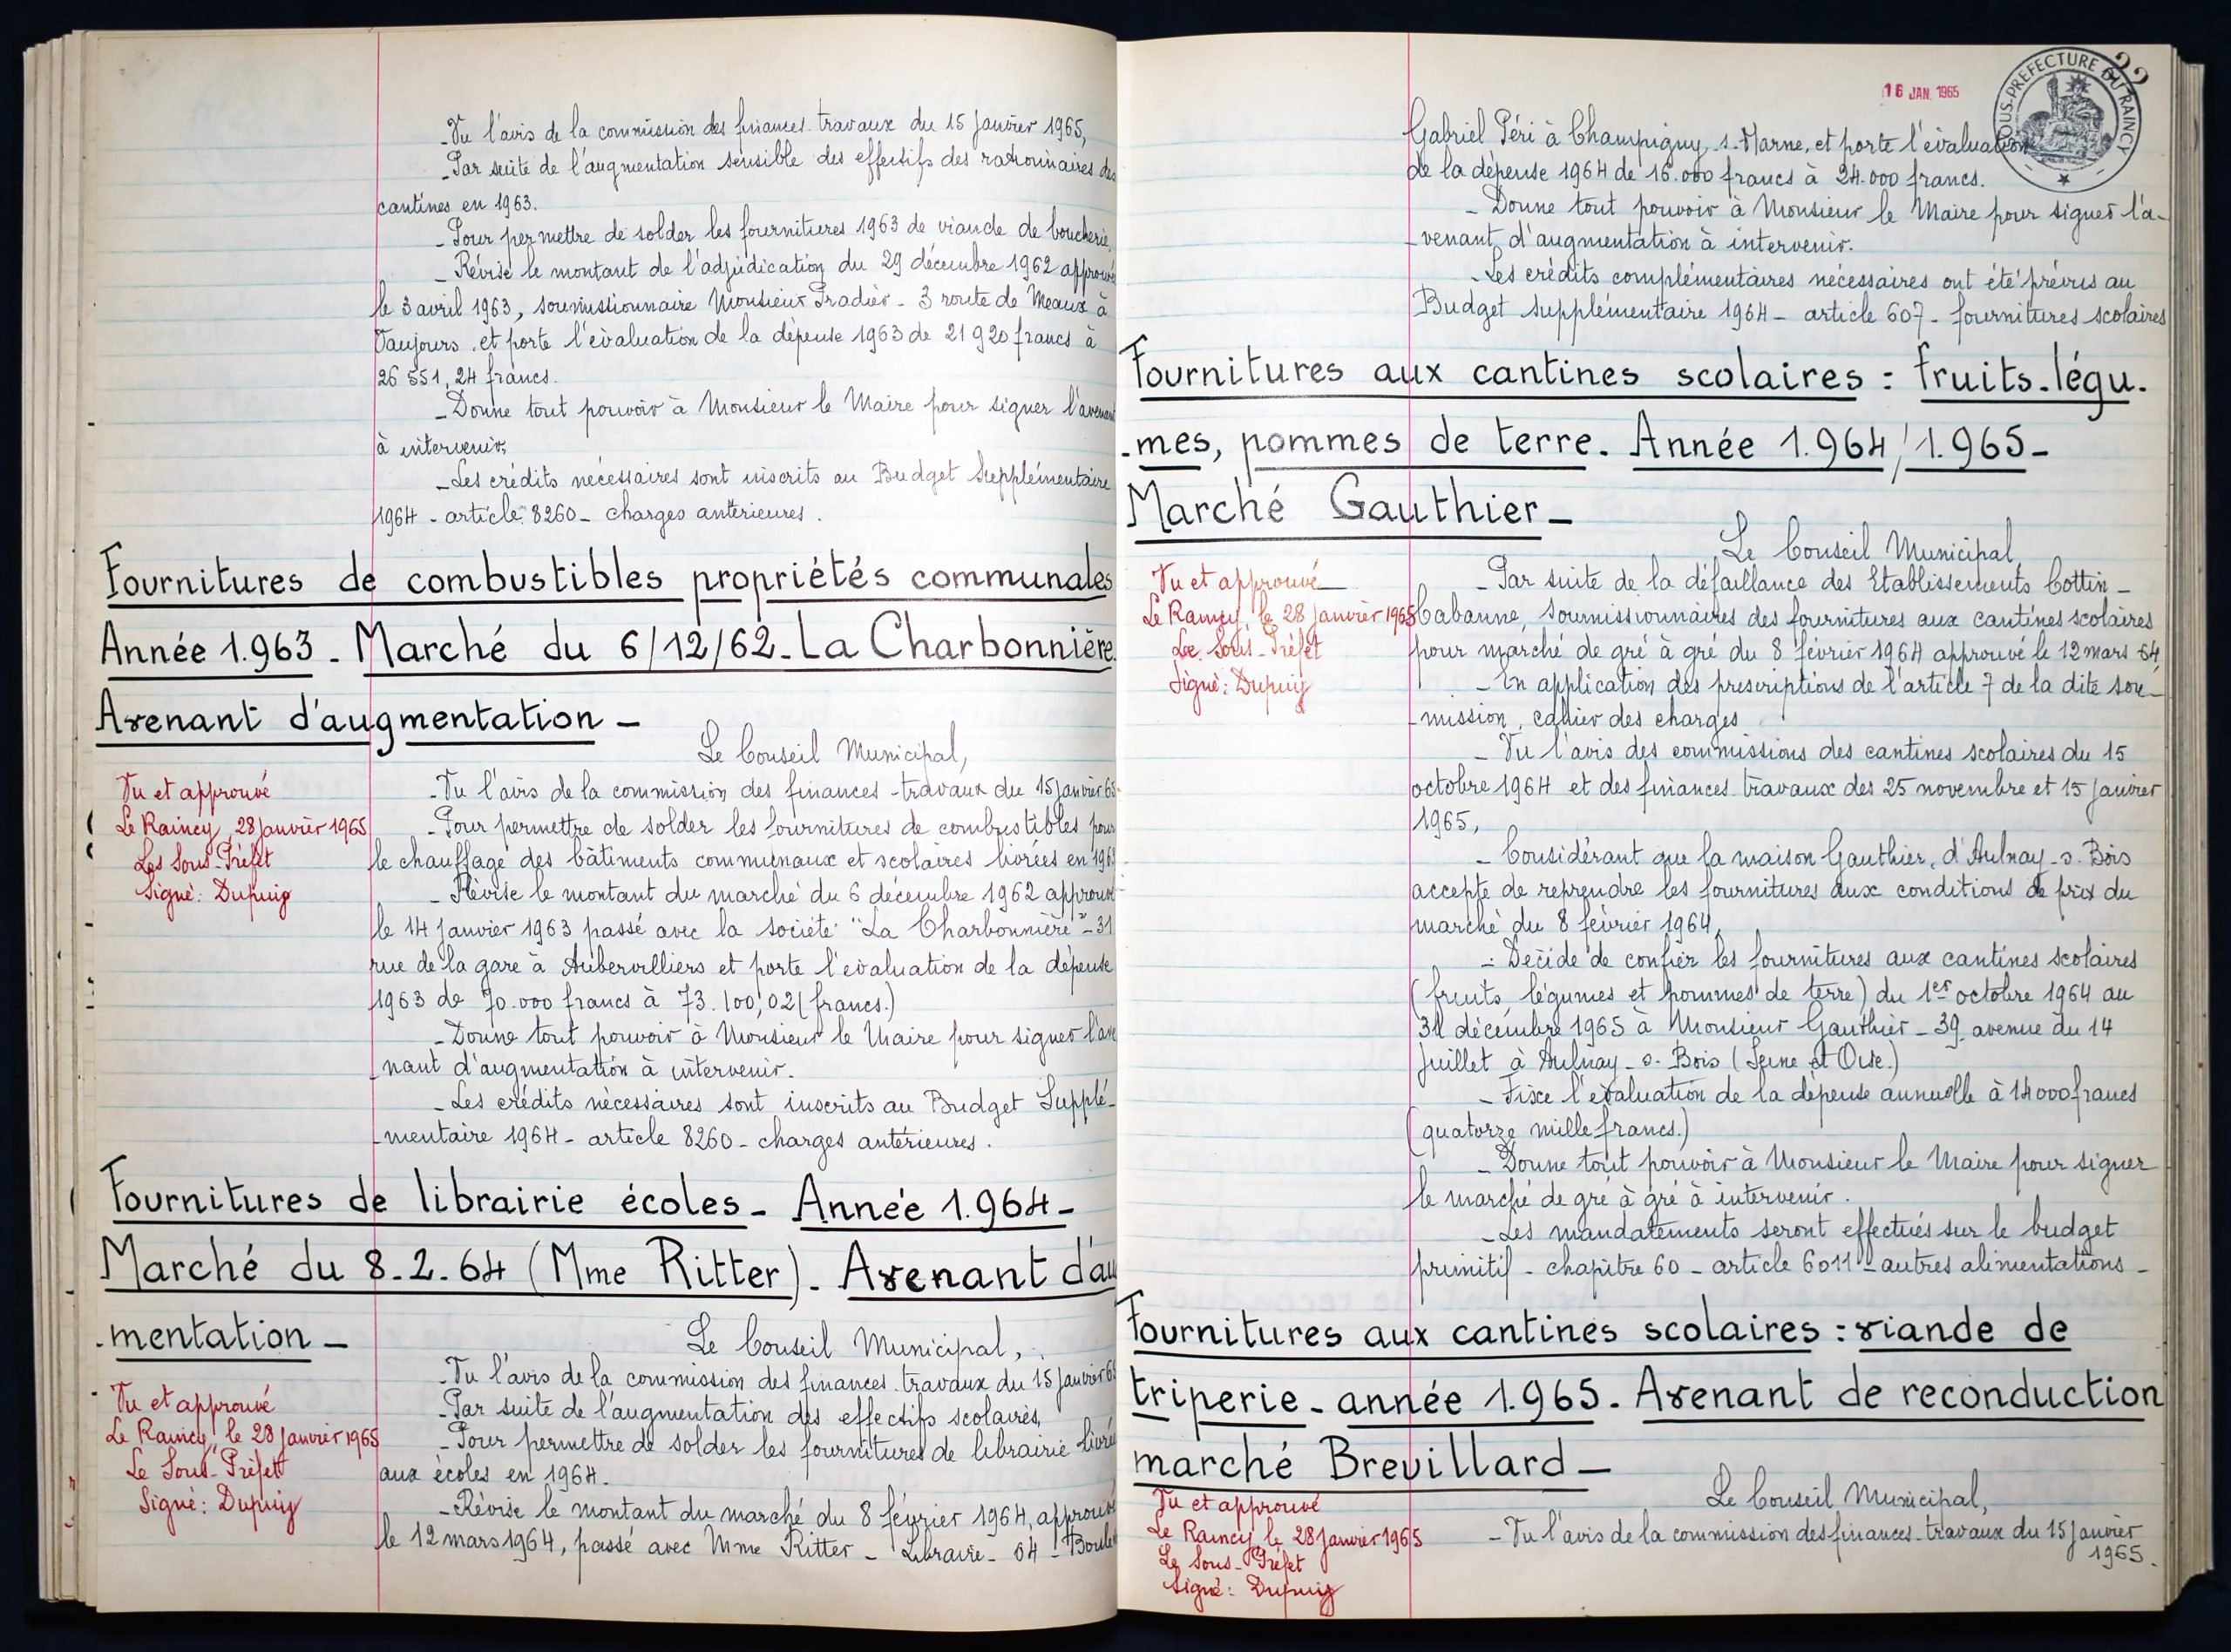 - Vu l'avis de la commission des finances travaux du 15 janvier 1965,
- Par suite de l'augmentation sensible des effectifs des rationnaires des
cantines en 1963.
- Pour permettre de solder les fournitures 1963 de viande de boucherie,
- Révise le montant de l'adjudication du 29 décembre 1962 approuvé
le 3 avril 1963, soumissionnaire Monsieur Pradier - 3 route de Meaux à
Vaujours, et porte l'évaluation de la dépense 1963 de 21 920 francs à
26 551, 24 francs.
- Donne tout pouvoir à Monsieur le Maire pour signer l'avenant
à intervenir,
- Les crédits nécessaires sont inscrits au Budget Supplémentaire
1964 - article 8260 - charges antérieures.
Fournitures de combustibles propriétés communales
Année 1.963 - Marché du 6/12/62 - La Charbonnière
Avenant d'augmentation -
Le Conseil Municipal,
Vu et approuvé
Le Raincy, 28 janvier 1965
Les Sous-Préfet
Signé : Dupuiy
- Vu l'avis de la commission des finances - travaux du 15 janvier 65
- Pour permettre de solder les fournitures de combustibles pour
le chauffage des bâtiments communaux et scolaires livrées en 1963
- Révise le montant du marché du 6 décembre 1962 approuvé
le 14 janvier 1963 passé avec la société "La Charbonnière" - 31
rue de la gare à Aubervilliers et porte l'évaluation de la dépense
1963 de 70.000 francs à 73.100,02 (francs.)
- Donne tout pouvoir à Monsieur le Maire pour signer l'ave
-nant d'augmentation à intervenir.
- Les crédits nécessaires sont inscrits au Budget Supplé-
-mentaire 1964 - article 8260 - charges antérieures.
Fournitures de librairie écoles - Année 1.964 -
Marché du 8.2.64 (Mme Ritter) - Avenant d'au
-mentation -
Le Conseil Municipal,
Vu et approuvé
Le Raincy, le 28 janvier 1965
Le Sous-Préfet
Signé : Dupuiy
- Vu l'avis de la commission des finances travaux du 15 janvier 65
- Par suite de l'augmentation des effectifs scolaires,
- Pour permettre de solder les fournitures de librairie livrées
aux écoles en 1964.
- Révise le montant du marché du 8 février 1964, approuvé
le 12 mars 1964, passé avec Mme Ritter - Librairie - 64 - Boule
16 JAN. 1965
SOUS-PREFECTURE DU RAINCY
22
Gabriel Péri à Champigny-s-Marne, et porte l'évaluation
de la dépense 1964 de 16.000 francs à 24.000 francs.
- Donne tout pouvoir à Monsieur le Maire pour signer l'a-
-venant d'augmentation à intervenir.
- Les crédits complémentaires nécessaires ont été prévus au
Budget supplémentaire 1964 - article 607 - fournitures scolaires
Fournitures aux cantines scolaires : fruits-légu-
-mes, pommes de terre. Année 1.964/1.965 -
Marché Gauthier -
Le Conseil Municipal,
Vu et approuvé
Le Raincy, le 28 janvier 1965
Le Sous-Préfet
Signé : Dupuiy
- Par suite de la défaillance des Etablissements Cottin -
Cabanne, soumissionnaires des fournitures aux cantines scolaires
pour marché de gré à gré du 8 février 1964 approuvé le 12 mars 64,
- En application des prescriptions de l'article 7 de la dite sou-
-mission, cahier des charges
- Vu l'avis des commissions des cantines scolaires du 15
octobre 1964 et des finances travaux des 25 novembre et 15 janvier
1965,
- Considérant que la maison Gauthier, d'Aulnay-s-Bois
accepte de reprendre les fournitures aux conditions de prix du
marché du 8 février 1964,
- Décide de confier les fournitures aux cantines scolaires
(fruits, légumes et pommes de terre) du 1er octobre 1964 au
31 décembre 1965 à Monsieur Gauthier - 39, avenue du 14
juillet à Aulnay-s-Bois (Seine et Oise.)
- Fixe l'évaluation de la dépense annuelle à 14000 francs
(quatorze mille francs.)
- Donne tout pouvoir à Monsieur le Maire pour signer
le marché de gré à gré à intervenir.
- Les mandatements seront effectués sur le budget
primitif - chapitre 60 - article 6011 - autres alimentations -
Fournitures aux cantines scolaires : viande de
triperie - année 1.965. Avenant de reconduction
marché Brevillard -
Le Conseil Municipal,
Vu et approuvé
Le Raincy, le 28 janvier 1965
Le Sous-Préfet
Signé : Dupuiy
- Vu l'avis de la commission des finances - travaux du 15 janvier
1965.